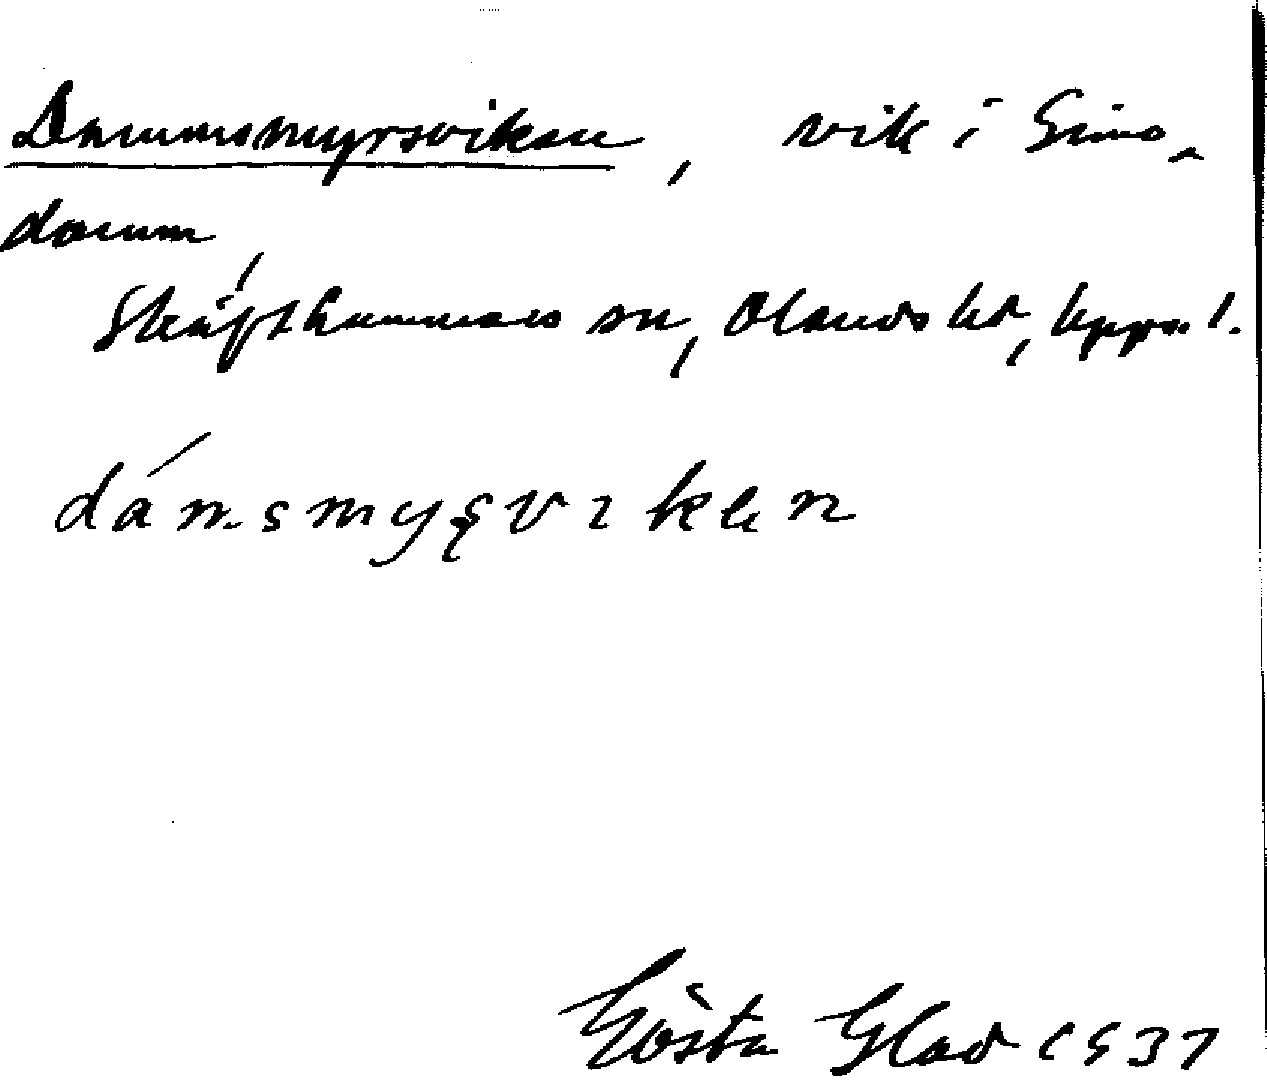 Dammsmyrsviken, vik i Gimo-
damm,
Skäfthammars sn, Olands hd, Upps. l.
dámsmyșvıken
Gösta Glad 1937